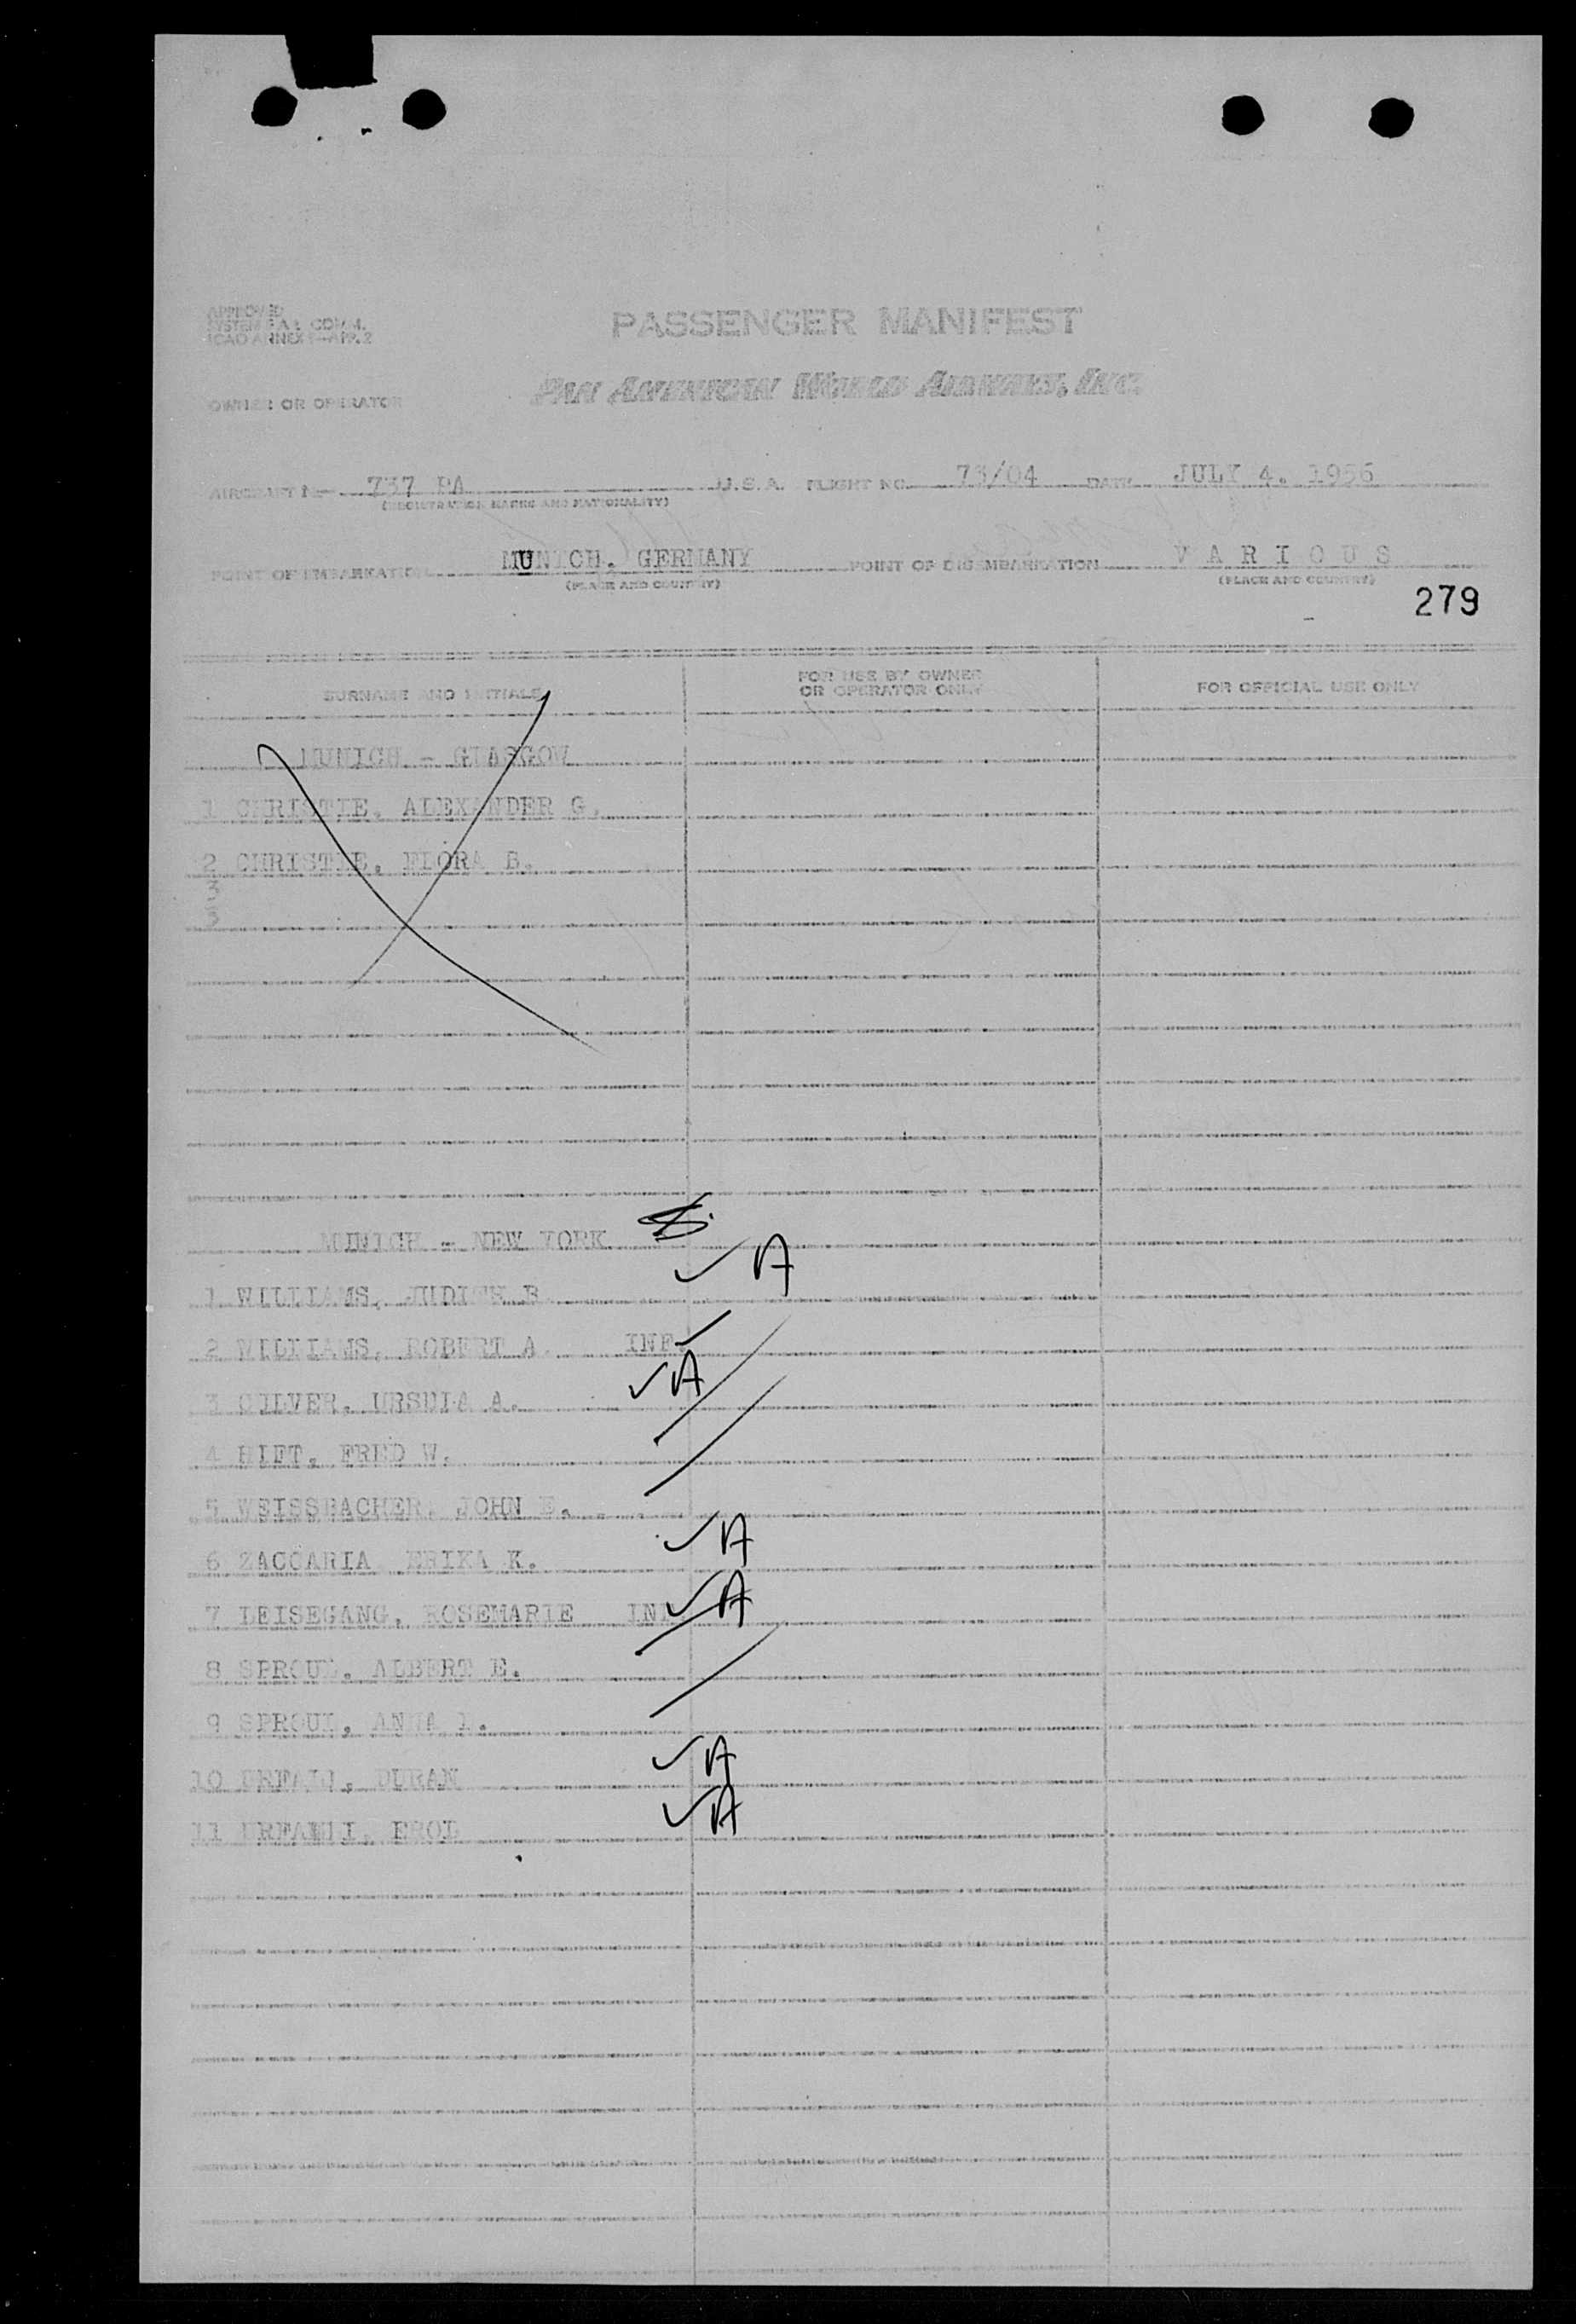 APPROVED
SYSTEM F.A.L. COMM.
ICAO ANNEX 9—APP. 2
PASSENGER MANIFEST
PAN AMERICAN WORLD AIRWAYS, INC.
OWNER OR OPERATOR
AIRCRAFT 737 PA U.S.A. FLIGHT NO. 73/04 DATE JULY 4. 1956
(REGISTRATION MARKS AND NATIONALITY)
POINT OF EMBARKATION MUNICH, GERMANY POINT OF DISEMBARKATION V A R I O U S
(PLACE AND COUNTRY) (PLACE AND COUNTRY)
279
SURNAME AND INITIALS FOR USE BY OWNER OR OPERATOR ONLY FOR OFFICIAL USE ONLY
MUNICH - GLASGOW
1 CHRISTIE, ALEXANDER G.
2 CHRISTIE, FLORA B.
3
MUNICH - NEW YORK
1 WILLIAMS, JUDITH B. ✓ A
2 WILLIAMS, ROBERT A. INF.
3 URSULA A. ✓ A
4 HIFT, FRED W.
5 WEISSBACHER, JOHN E.
6 ZACCARIA ERIKA K. ✓ A
7 LEISEGANG, ROSEMARIE INF ✓ A
8 SPROUL, ALBERT E.
9 SPROUL, ANNA
10 DURAN ✓ A
11 EROL ✓ A